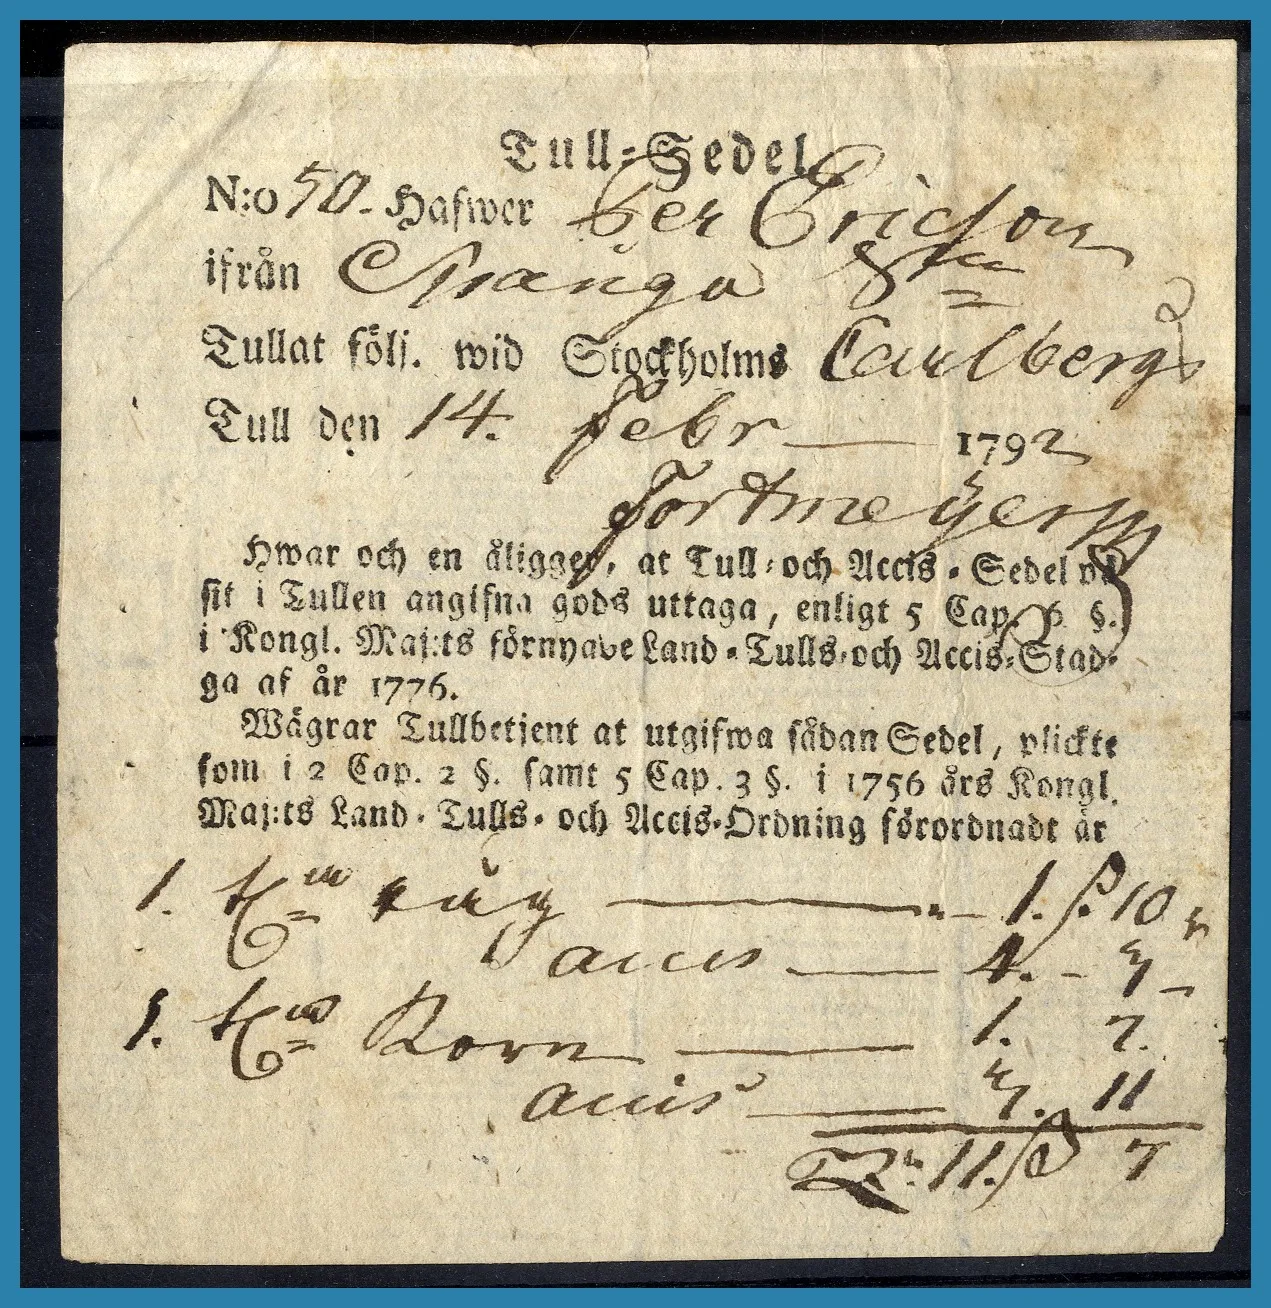 Tull-Sedel.
N:o 50. Hafwer Per Ericson
ifrån Spånga Sn
Tullat följ. wid Stockholms Carlbergs
Tull den 14. Febr 1792
Fortmeijer
Hwar och en åligger, at Tull- och Accis-Sedel på
sit i Tullen angifna gods uttaga, enligt 5 Cap. 6 §.
i Kongl. Maj:ts förnyade Land-Tulls- och Accis-Stad-
ga af år 1776.
Wägrar Tullbetjent at utgifwa sådan Sedel, plickte
som i 2 Cap. 2 §. samt 5 Cap. 3 §. i 1756 års Kongl.
Maj:ts Land-Tulls- och Accis-Ordning förordnadt är
1. råg 1. ß. 10
accis
1. Korn 1. 7.
accis 11
11. ß 7